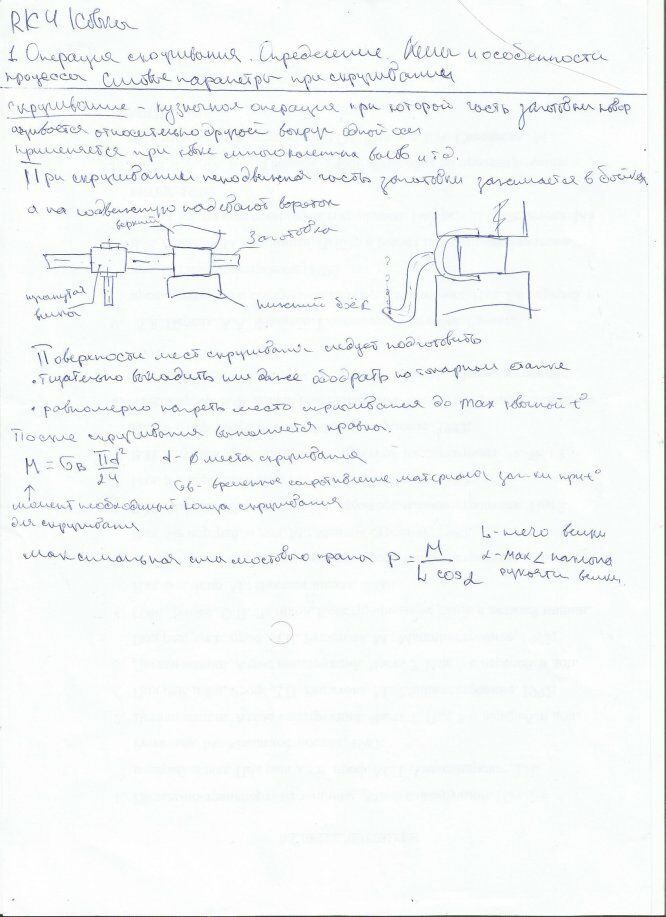 РК4 Ковка
1. Операция скручивания. Определение. Цели и особенности
процесса силовые параметры при скручивании
Скручивание - кузнечная операция при которой часть заготовки повор
ачивается относительно другой вокруг одной оси
применяется при ковке коленчатых валов и т.д.
При скручивании неподвижная часть заготовки зажимается в бойках,
а на подвижную надевают вороток
верхний
Заготовка
вилка
нижний боёк
Поверхности мест скручивания следует подготовить
• тщательно выгладить или даже ободрать на токарном станке
• равномерно нагреть место скручивания до max ковочной t°
После скручивания выполняется правка.
M = σв πd²/24 d - ø места скручивания
σв - временное сопротивление материала заг-ки при t°
конца скручивания
момент необходимый
для скручивания
Максимальная сила мостового крана P = M / L cos α
L - плечо вилки
α - max ∠ наклона
рукояти вилки.